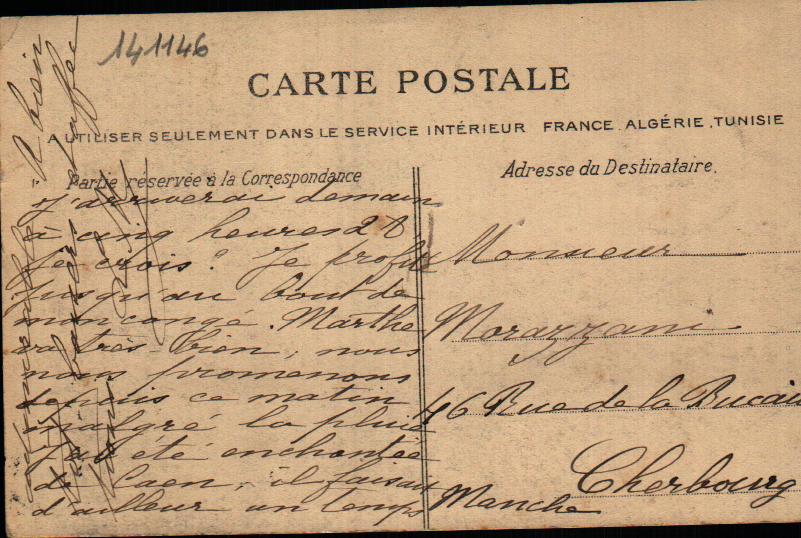 141146
CARTE POSTALE
A UTILISER SEULEMENT DANS LE SERVICE INTÉRIEUR FRANCE. ALGÉRIE, TUNISIE
Partie réservée à la Correspondance
J'arriverai demain
à cinq heures 28
je crois. Je profite
jusqu'au bout de
mon congé. Marthe
va très bien, nous
nous promenons
depuis ce matin
malgré la pluie
J'ai été enchantée
de Caen, il faisait
d'ailleur un temps
A bien
Adresse du Destinataire.
Monsieur
Morazzani
46 Rue de la Bucaille
Cherbourg
Manche